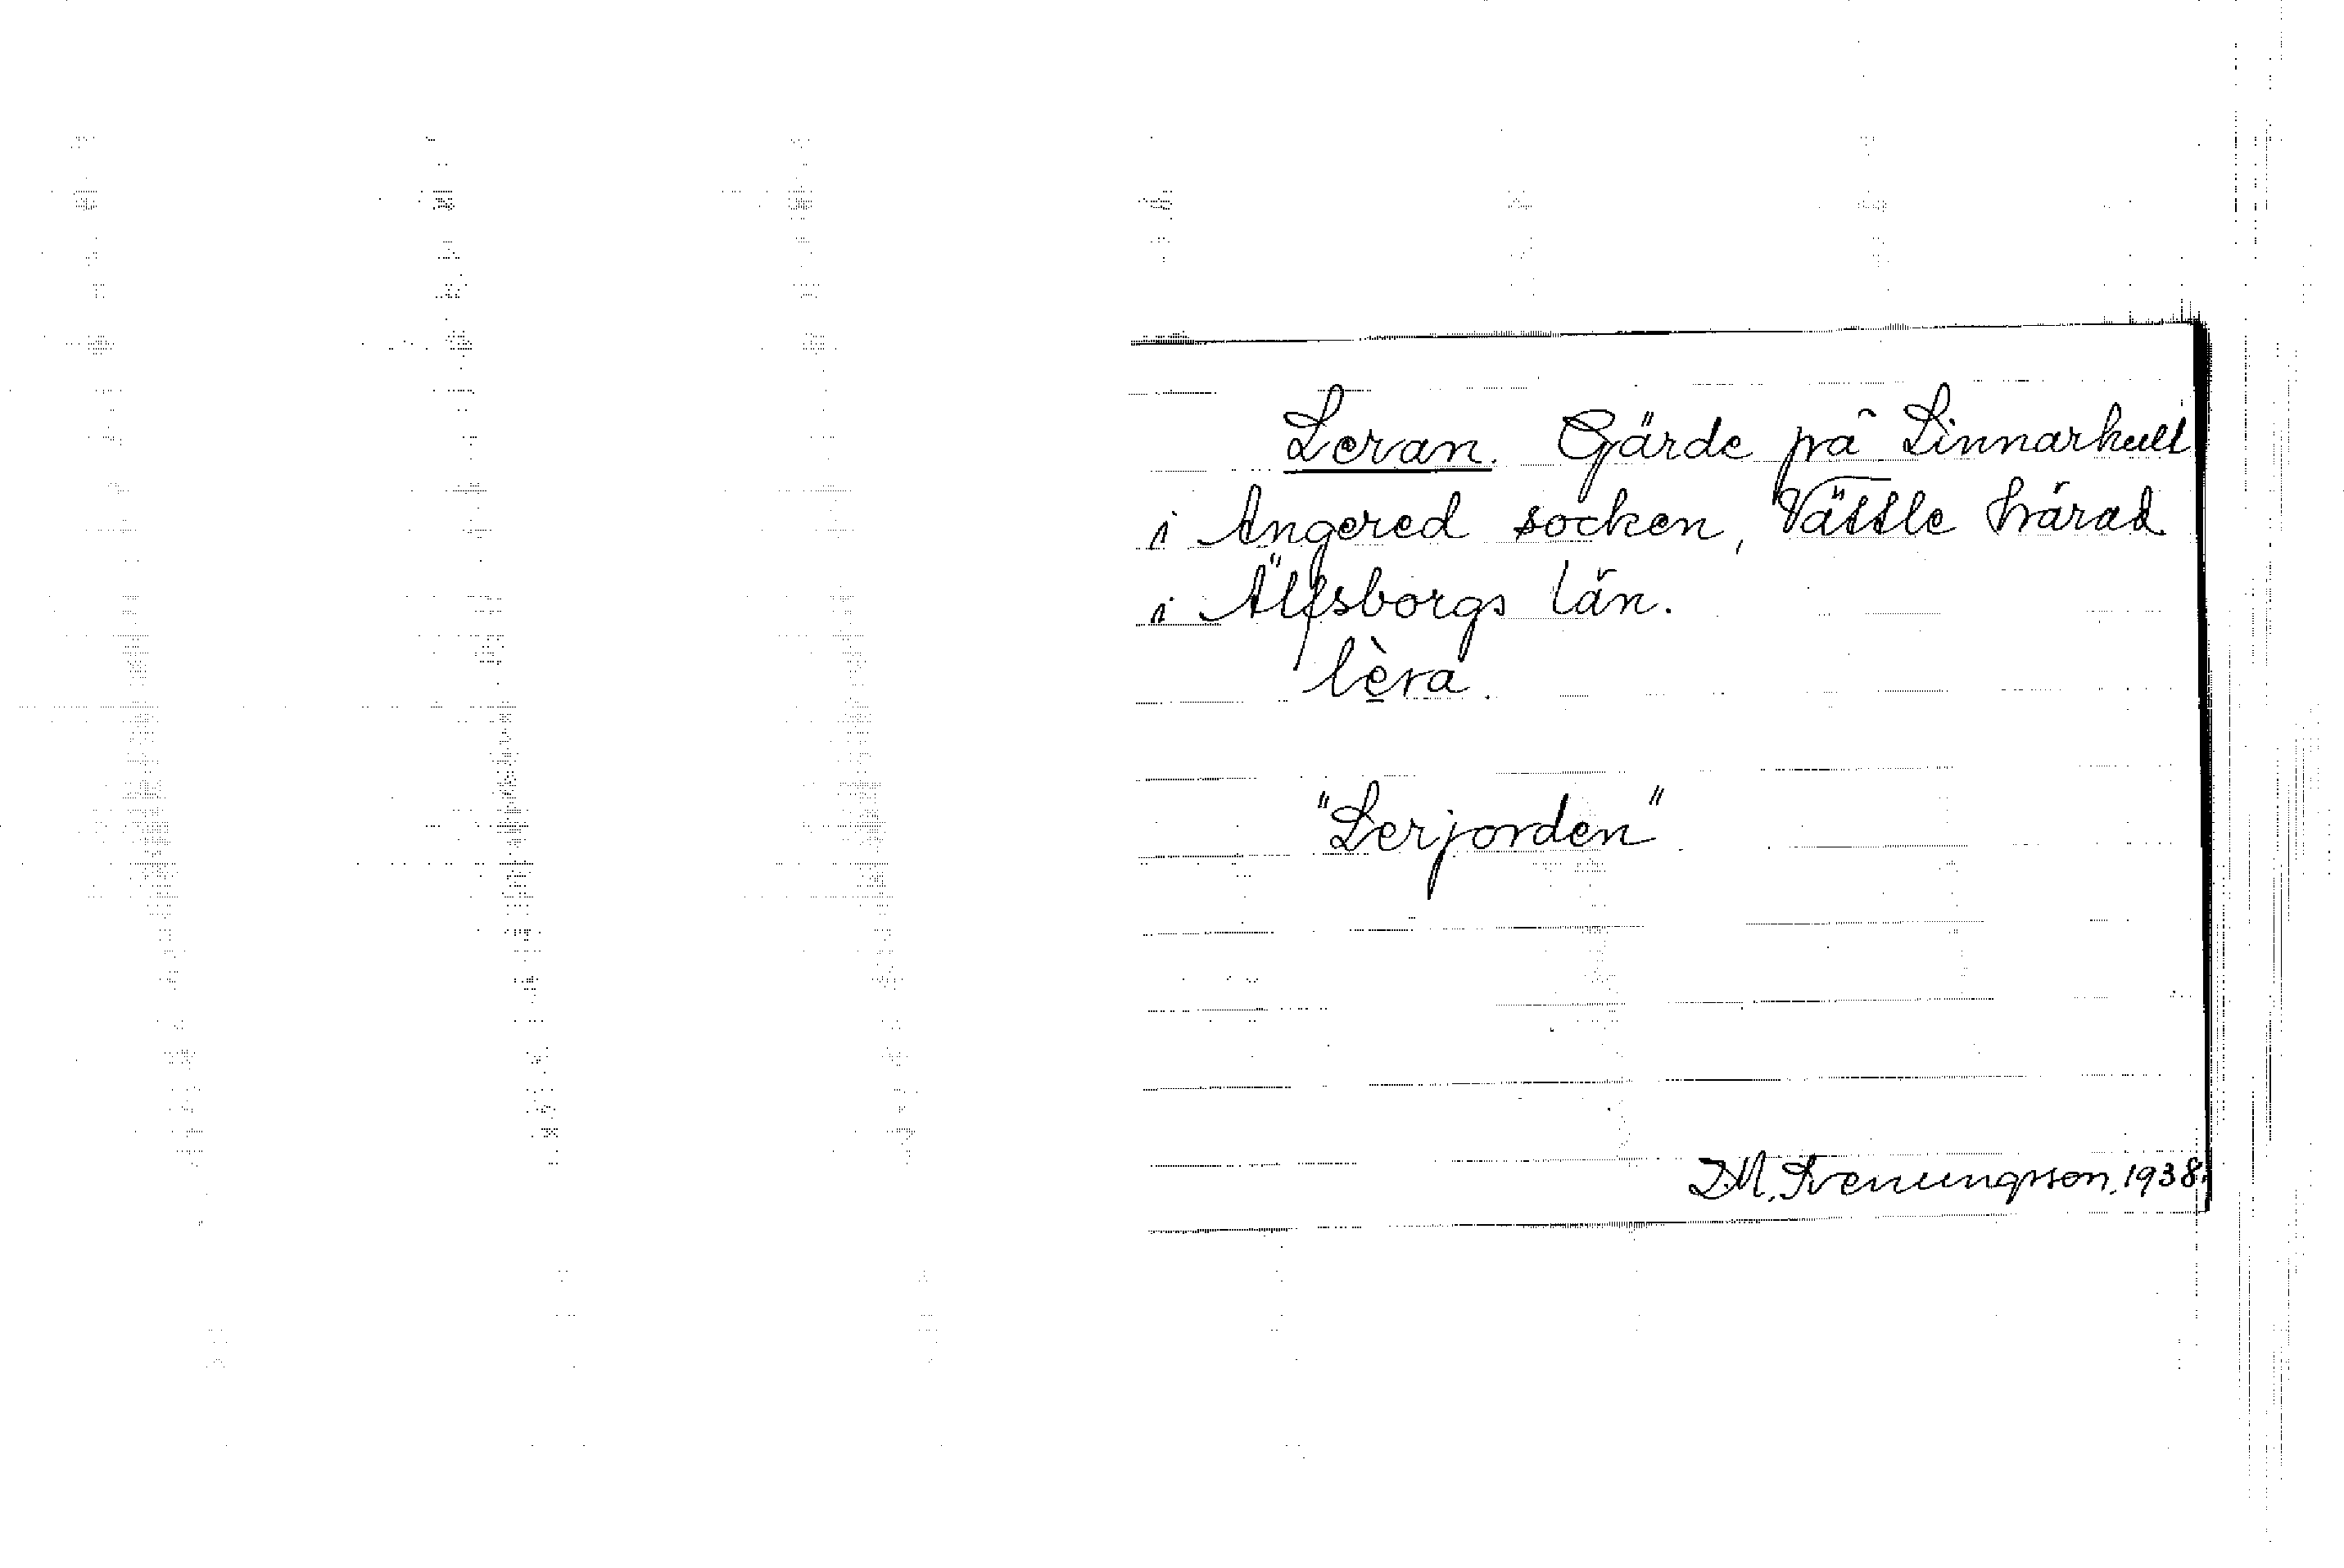 Leran. Gärde på Linnarhult
i Angered socken, Vättle härad
i Älfsborgs län.
lèra.
"Lerjorden"
D.M. Svenungsson. 1938.